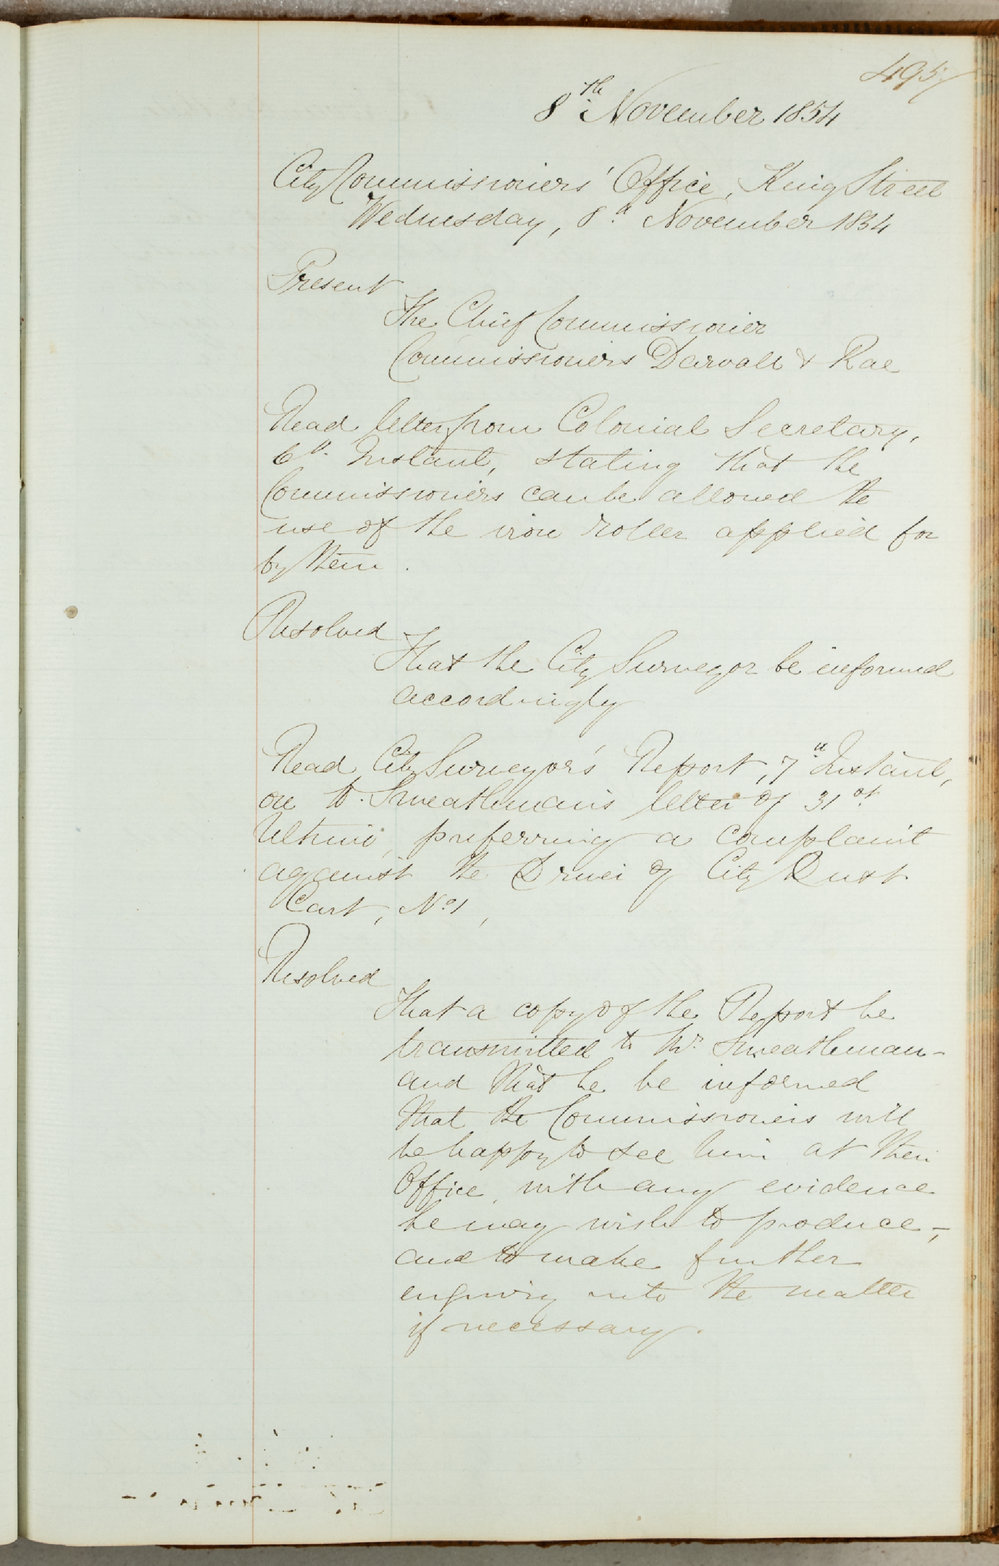 495
8th November 1854
City Commissioners' Office, King Street
Wednesday, 8th November 1854
Present
The Chief Commissioner
Commissioners Darvall & Rae
Read letter from Colonial Secretary,
6th Instant, stating that the
Commissioners can be allowed the
use of the iron roller applied for
by them.
Resolved
That the City Surveyor be informed
accordingly
Read City Surveyor's Report, 7th Instant,
on Mr. Smeathman's letter of 31st
Ultimo, preferring a complaint
against the Driver of City Dust
Cart, No 1,
Resolved
That a copy of the Report be
transmitted to Mr Smeathman-
and that he be informed
that the Commissioners will
be happy to see him at their
Office, with any evidence
he may wish to produce,-
and to make further
enquiry into the matter
if necessary.